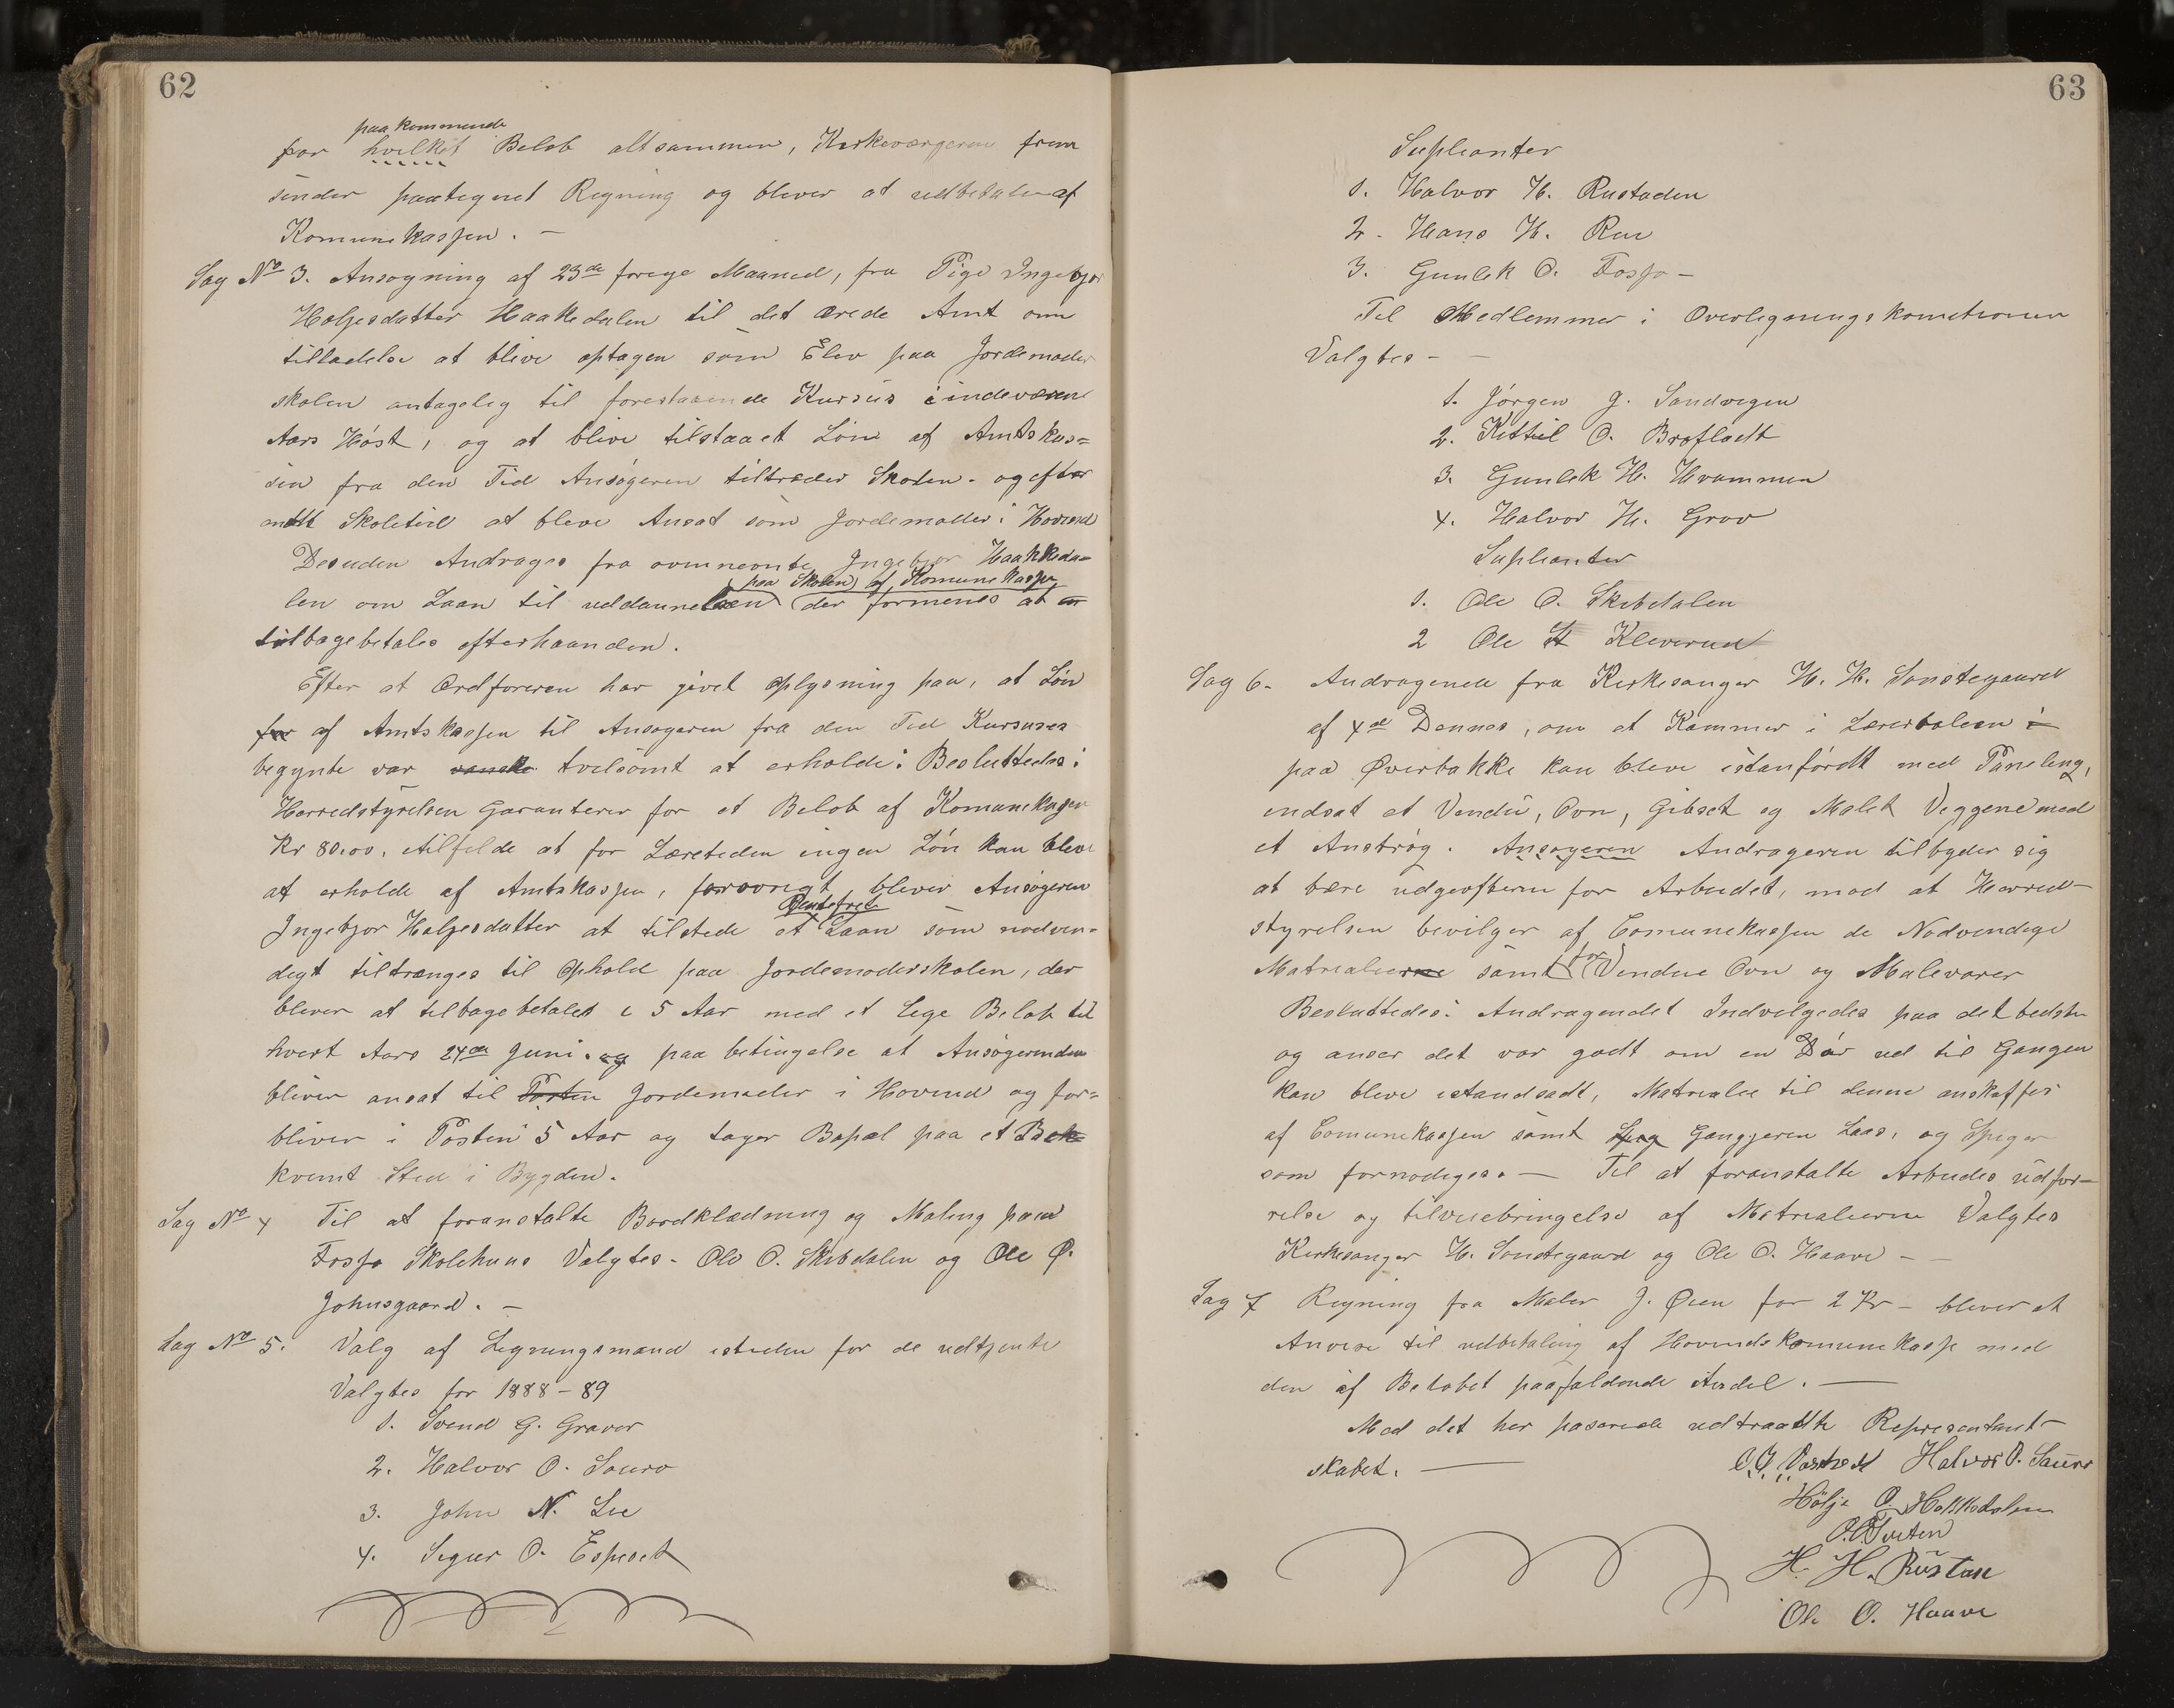 62
paa kommende
for hvilket Beløb altsammen, Kirkeværgerne frem
sender paategnet Regning og bliver at udbetale af
Komunekassen. —
Sag No 3. Ansøgning af 23de forrige Maaned, fra Pige Ingebjør
Holjesdatter Haakedalen til det ærede Amt om
tilladelse at blive optagen som Elev paa Jordemoder
skolen antagelig til forestaaende Kursus i indeværene
Aars Høst, og at blive tilstaaet Løn af Amtskas=
sen fra den Tid Ansøgeren tiltræder Skolen - og efter
endt Skoletid at bleve Ansat som Jordemoder i Hovend
Desuden Andrages fra ovennevnte Ingebjør Haakkeda=
paa Skolen af Komunekassen
len om Laan til uddannelsen der formenes at
tilbagebetales efterhaanden.
Efter at Ordføreren har givet Oplysning paa, at Løn
for af Amtskassen til Ansøgeren fra den Tid Kursuset
begynte var vanske tvilsomt at erholde: Besluttedes:
Herredstyrelsen Garanterer for et Beløb af Komunekassen
Kr 80.00. itilfelde at for Læretiden ingen Løn kan bleve
at erholde af Amtskassen, forøvrigt bliver Ansøgeren
Rentefrit
Ingebjør Holjesdatter at tilstede et Laan som nødven=
digt tiltrænges til Ophold paa Jordemoderskolen, der
bliver at tilbagebetales i 5 Aar med et lige Beløb til
hvert Aars 24de Juni. og paa betingelse at Ansøgerinden
bliver ansat til Posten Jordemoder i Hovend og for=
bliver i Posten 5 Aar og tager Bopæl paa et Bek=
kvemt Sted i Bygden.
Sag No 4 Til at foranstalte Bordklædning og Maling paa
Fosso Skolehuus Valgtes - Ole O. Skibdalen og Ole Ø.
Johnsgaard. —
Sag No 5. Valg af Legningsmænd isteden for de udtjente
Valgtes for 1888-89
1. Svend G. Graver
2. Halvor O. Souro
3. John N. Lie
4. Sigur O. Espeset
63
Suplianter
1. Halvor H. Rustaden
2. Hans H. Rue
3. Gunlek O. Fosso —
Til Medlemmer i Overlegningskometionen
Valgtes —
1. Jörgen J. Sandvigen
2. Kittil O. Brofladt
3. Gunlek H. Hvammen
4. Halvor H. Grov
Suplianter
1. Ole O. Skibdalen
2 Ole H Kleverud
Sag 6. Andragende fra Kirkesanger H. H. Sønstegaard
af 4de Dennes, om et Kammer i Lærerbolien i
paa Øverbakke kan bleve istanfördt med Paneling,
indsat et Vendu, Ovn, Gibset og Malet Veggene med
et Anstrøg. Ansøgeren Andrageren tilbyder sig
at bære udgefterne for Arbeidet, mod at Herred-
styrelsen bevilger af Comunekassen de Nødvendige
for
Matrialierne samt Vendue Ovn og Malevarer
Besluttedes: Andragendet Indvilgedes paa det bedste
og anser det var godt om en Dør ud til Gangen
kan bleve istandsadt, Matrialie til denne anskaffes
af Comunekassen samt Spig Gangjeren Laas, og Spiger
som fornødiges. — Til at foranstalte Arbeides udfør-
relse og tilveiebringelse af Matrialierne Valgtes
Kirkesanger H. Sønstegaard og Ole O. Haave —
Sag 7 Regning fra Maler J. Øien for 2 Kr — bliver at
Anvise til udbetaling af Hovindskomunekasse med
den af Beløbet paafaldende Andel. —
Med det her paserede udtraadte Representant-
skabet. —
Halvor O. Sauro
Hölje O. Hakkedalen
O.O. Tveten
H. H. Rustan
Ole O. Haave